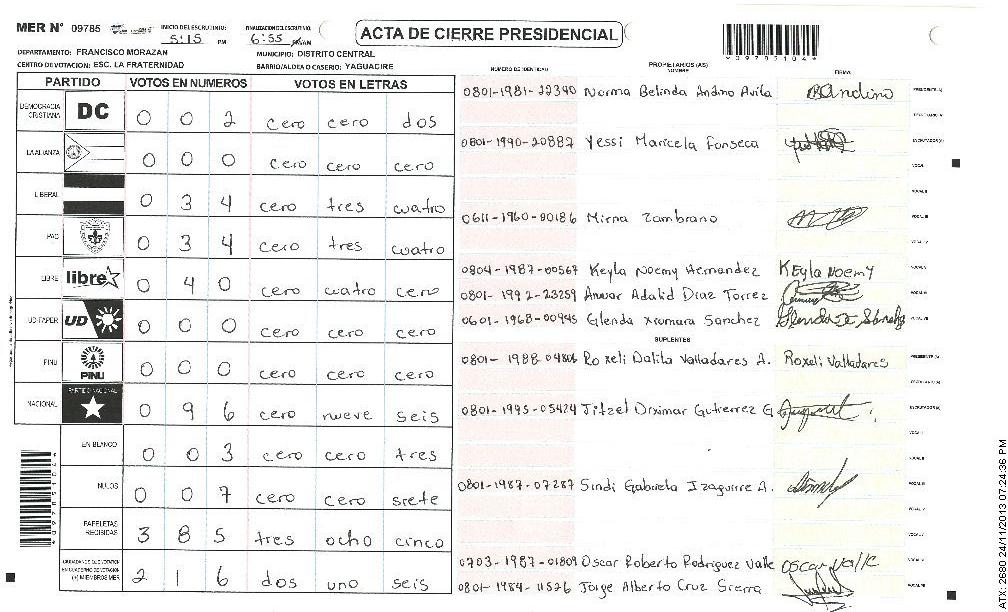 MER N° 09785 INICIO DEL ESCRUTINIO: 5:15 PM FINALIZACION ESCRUTINIO: 6:55
ACTA DE CIERRE PRESIDENCIAL
*09785104*
DEPARTAMENTO: FRANCISCO MORAZAN MUNICIPIO: DISTRITO CENTRAL
CENTRO DE VOTACION: ESC. LA FRATERNIDAD BARRIO/ALDEA O CASERIO: YAGUACIRE
PARTIDO VOTOS EN NUMEROS VOTOS EN LETRAS
DEMOCRACIA CRISTIANA DC 0 0 2 cero cero dos
LA ALIANZA 0 0 0 cero cero cero
LIBERAL 0 3 4 cero tres cuatro
PAC 0 3 4 cero tres cuatro
LIBRE libre 0 4 0 cero cuatro cero
UD-FAPER UD 0 0 0 cero cero cero
PINU PINU 0 0 0 cero cero cero
NACIONAL PARTIDO NACIONAL 0 9 6 cero nueve seis
EN BLANCO 0 0 3 cero cero tres
NULOS 0 0 7 cero cero siete
PAPELETAS RECIBIDAS 3 8 5 tres ocho cinco
CIUDADANOS QUE VOTARON EN CUADERNO DE VOTACION (+) MIEMBROS MER 2 1 6 dos uno seis
NUMERO DE IDENTIDAD PROPIETARIOS (AS) NOMBRE FIRMA
0801-1981-22340 Norma Belinda Andino Avila BAndino PRESIDENTE (A)
SECRETARIO (A)
0801-1990-20887 Yessi Maricela Fonseca ESCRUTADOR (A)
VOCAL I
VOCAL II
0611-1960-00186 Mirna Zambrano VOCAL III
VOCAL IV
0804-1987-00567 Keyla Noemy Hernandez Keyla Noemy VOCAL V
0801-1992-23259 Anwar Adalid Diaz Torrez VOCAL VI
0601-1968-00945 Glenda Xiomara Sanchez VOCAL VII
SUPLENTES
0801-1988-04806 Roxeli Dalila Valladares A. Roxeli Valladares PRESIDENTE (A)
SECRETARIO (A)
0801-1995-05424 Jitzel Diximar Gutierrez G ESCRUTADOR (A)
VOCAL I
VOCAL II
0801-1987-07287 Sindi Gabriela Izaguirre A. VOCAL III
VOCAL IV
VOCAL V
0703-1987-01809 Oscar Roberto Rodriguez Valle Oscar Valle VOCAL VI
0801-1984-11526 Jorge Alberto Cruz Sierra VOCAL VII
*09785104*
ATX-2580 24/11/2013 07:24:36 PM